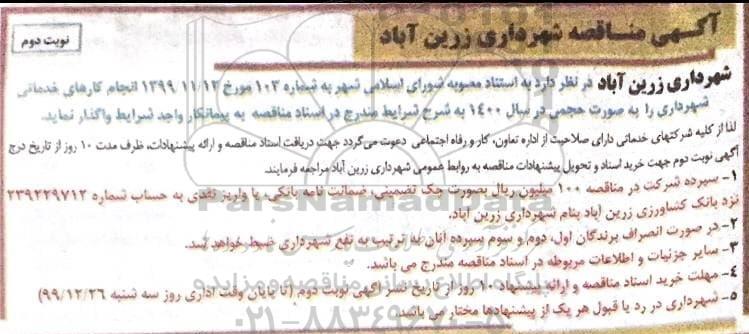 آگهی مناقصه شهرداری زرین آباد
نوبت دوم
شهرداری زرین آباد در نظر دارد به استناد مصوبه شورای اسلامی شهر به شماره ۱۰۳ مورخ ۱۳۹۹/۱۱/۱۲ انجام کارهای خدماتی
شهرداری را به صورت حجمی در سال ۱۴۰۰ به شرح شرایط مندرج در اسناد مناقصه به پیمانکار واجد شرایط واگذار نماید.
لذا از کلیه شرکتهای خدماتی دارای صلاحیت از اداره تعاون، کار و رفاه اجتماعی دعوت می‌گردد جهت دریافت اسناد مناقصه و ارائه پیشنهادات، ظرف مدت ۱۰ روز از تاریخ درج
آگهی نوبت دوم جهت خرید اسناد و تحویل پیشنهادات مناقصه به روابط عمومی شهرداری زرین آباد مراجعه فرمایند.
۱- سپرده شرکت در مناقصه ۱۰۰ میلیون ریال بصورت چک تضمینی، ضمانت نامه بانکی، یا واریز نقدی به حساب شماره ۲۳۹۲۲۹۷۱۲
نزد بانک کشاورزی زرین آباد بنام شهرداری زرین آباد.
۲- در صورت انصراف برندگان اول، دوم و سوم سپرده آنان به ترتیب به نفع شهرداری ضبط خواهد شد.
۳- سایر جزئیات و اطلاعات مربوطه در اسناد مناقصه مندرج می باشد.
۴- مهلت خرید اسناد مناقصه و ارائه پیشنهاد ۱۰ روز از تاریخ نشر آگهی نوبت دوم (تا پایان وقت اداری روز سه شنبه ۹۹/۱۲/۲۶)
۵- شهرداری در رد یا قبول هر یک از پیشنهادها مختار می باشد.
ParsNamadData
پایگاه اطلاع رسانی مناقصه و مزایده
۰۲۱-۸۸۳۴۹۶۷۰-۵